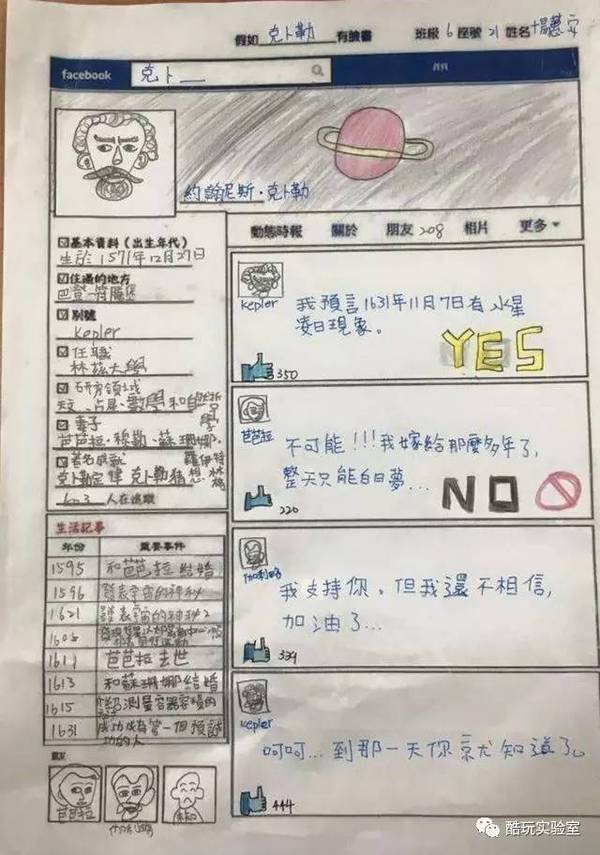 假如 克卜勒 有臉書 班級 6 座號 21 姓名
facebook 克卜
約翰尼斯·克卜勒
動態時報 關於 朋友 208 相片 更多
基本資料(出生年代)
生於1571年12月27日
住過的地方
別號
Kepler
任職
林茲大學
研究領域
天文、占星、數學和自然哲學
妻子
芭芭拉·穆勒、蘇珊娜·羅伊特林格
著名成就
克卜勒定律 克卜勒猜想
人在追蹤
生活記事
年份 重要事件
1595 和芭芭拉結婚
1596 發表宇宙的神秘
1621 發表宇宙的神秘2
1611 芭芭拉去世
1613 和蘇珊娜結婚
1615
1631
芭芭拉
Kepler
我預言1631年11月7日有水星
凌日現象。
YES
350
芭芭拉
不可能!!!我嫁給那麼多年了,
整天只能白日夢...
NO
226
伽利略
我支持你。但我還不相信,
加油了...
339
Kepler
呵呵...到那一天你就知道了。
444
酷玩实验室